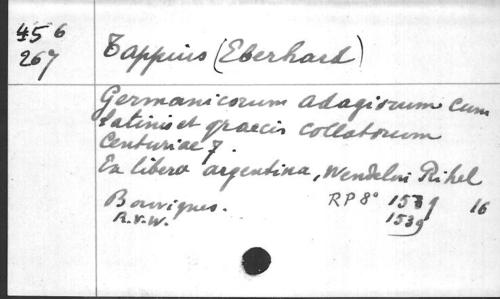 456
267
Tappius (Eberhard)
Germanicorum adagiorum cum
latinis et graecis collatorum
Centuriae 7.
Ex libera argentina, Wendelini Rihel
Bouvignes. RP 8° 1539 16
A.v.W. 1539